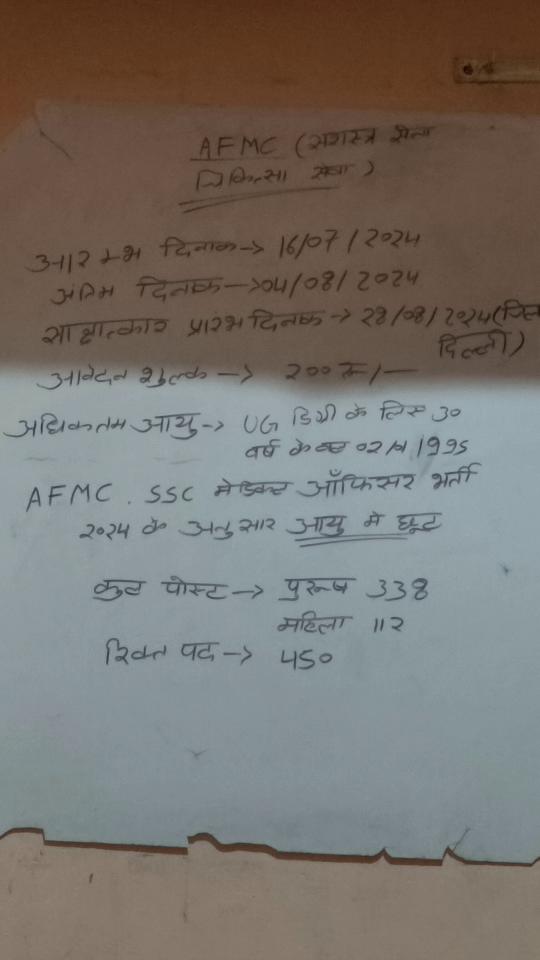 AFMC (सशस्त्र सेना
चिकित्सा सेवा)
आरम्भ दिनांक-> 16/07/2024
अंतिम दिनांक->04/08/2024
साक्षात्कार प्रारंभ दिनांक-> 28/08/2024(
दिल्ली)
आवेदन शुल्क -> 200 रू/-
अधिकतम आयु-> UG डिग्री के लिए 30
वर्ष 02/ 1995
AFMC. SSC मेडिकल ऑफिसर भर्ती
2024 के अनुसार आयु मे छूट
कुल पोस्ट -> पुरूष 338
महिला 112
रिक्त पद -> 450